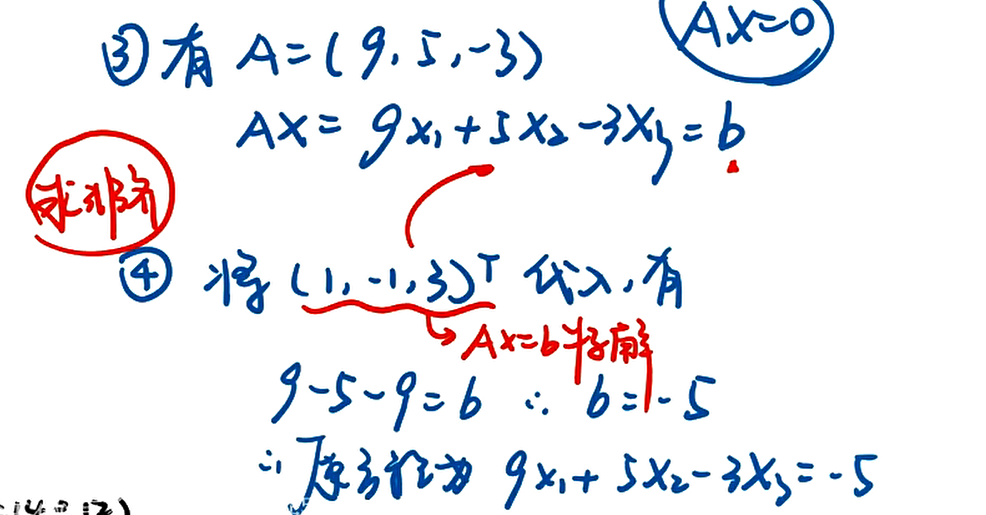 AX=0
③ 有 A=(9,5,-3)
AX= 9x₁+5x₂-3x₃=b
求非齐
④ 将 (1,-1,3)ᵀ 代入,有
Ax=b 特解
9-5-9=b ∴ b=-5
∴ 原方程为 9x₁+5x₂-3x₃=-5